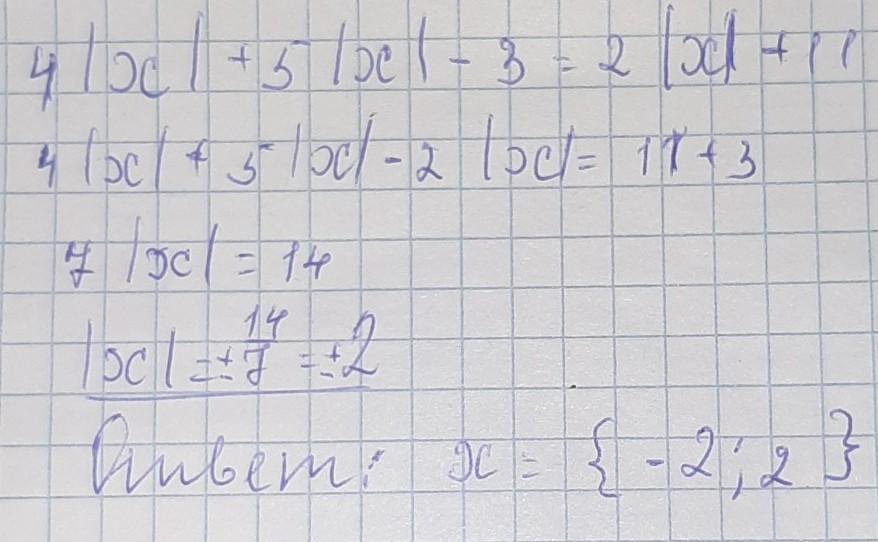 4|x| + 5|x| - 3 = 2|x| + 11
4|x| + 5|x| - 2|x| = 11 + 3
7|x| = 14
|x| = ± 14/7 = ± 2
Ответ: x = {-2; 2}